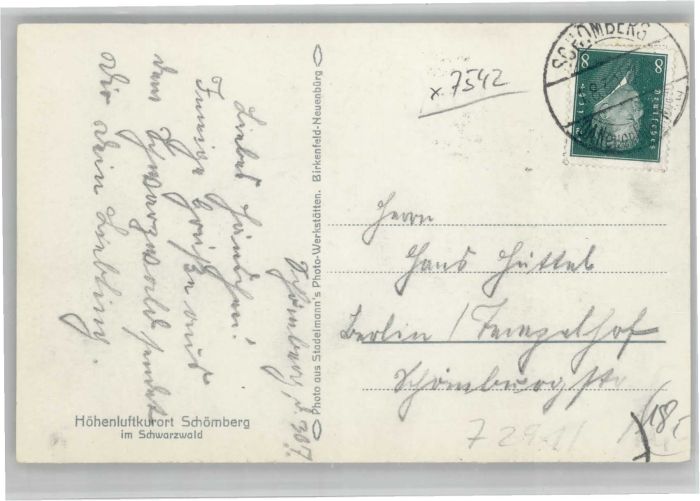 Schömberg, d. 30.7.
Liebes Hänschen!
Innige Grüße aus
dem Schwarzwald sendet
Dir Dein Liebling.
Höhenluftkurort Schömberg
im Schwarzwald
Photo aus Stadelmann's Photo-Werkstätten. Birkenfeld-Neuenbürg
x 7542
SCHÖMBERG
8 8
Deutsches
Herrn
Hans Hüttel
Berlin / Tempelhof
Schömburgstr
18